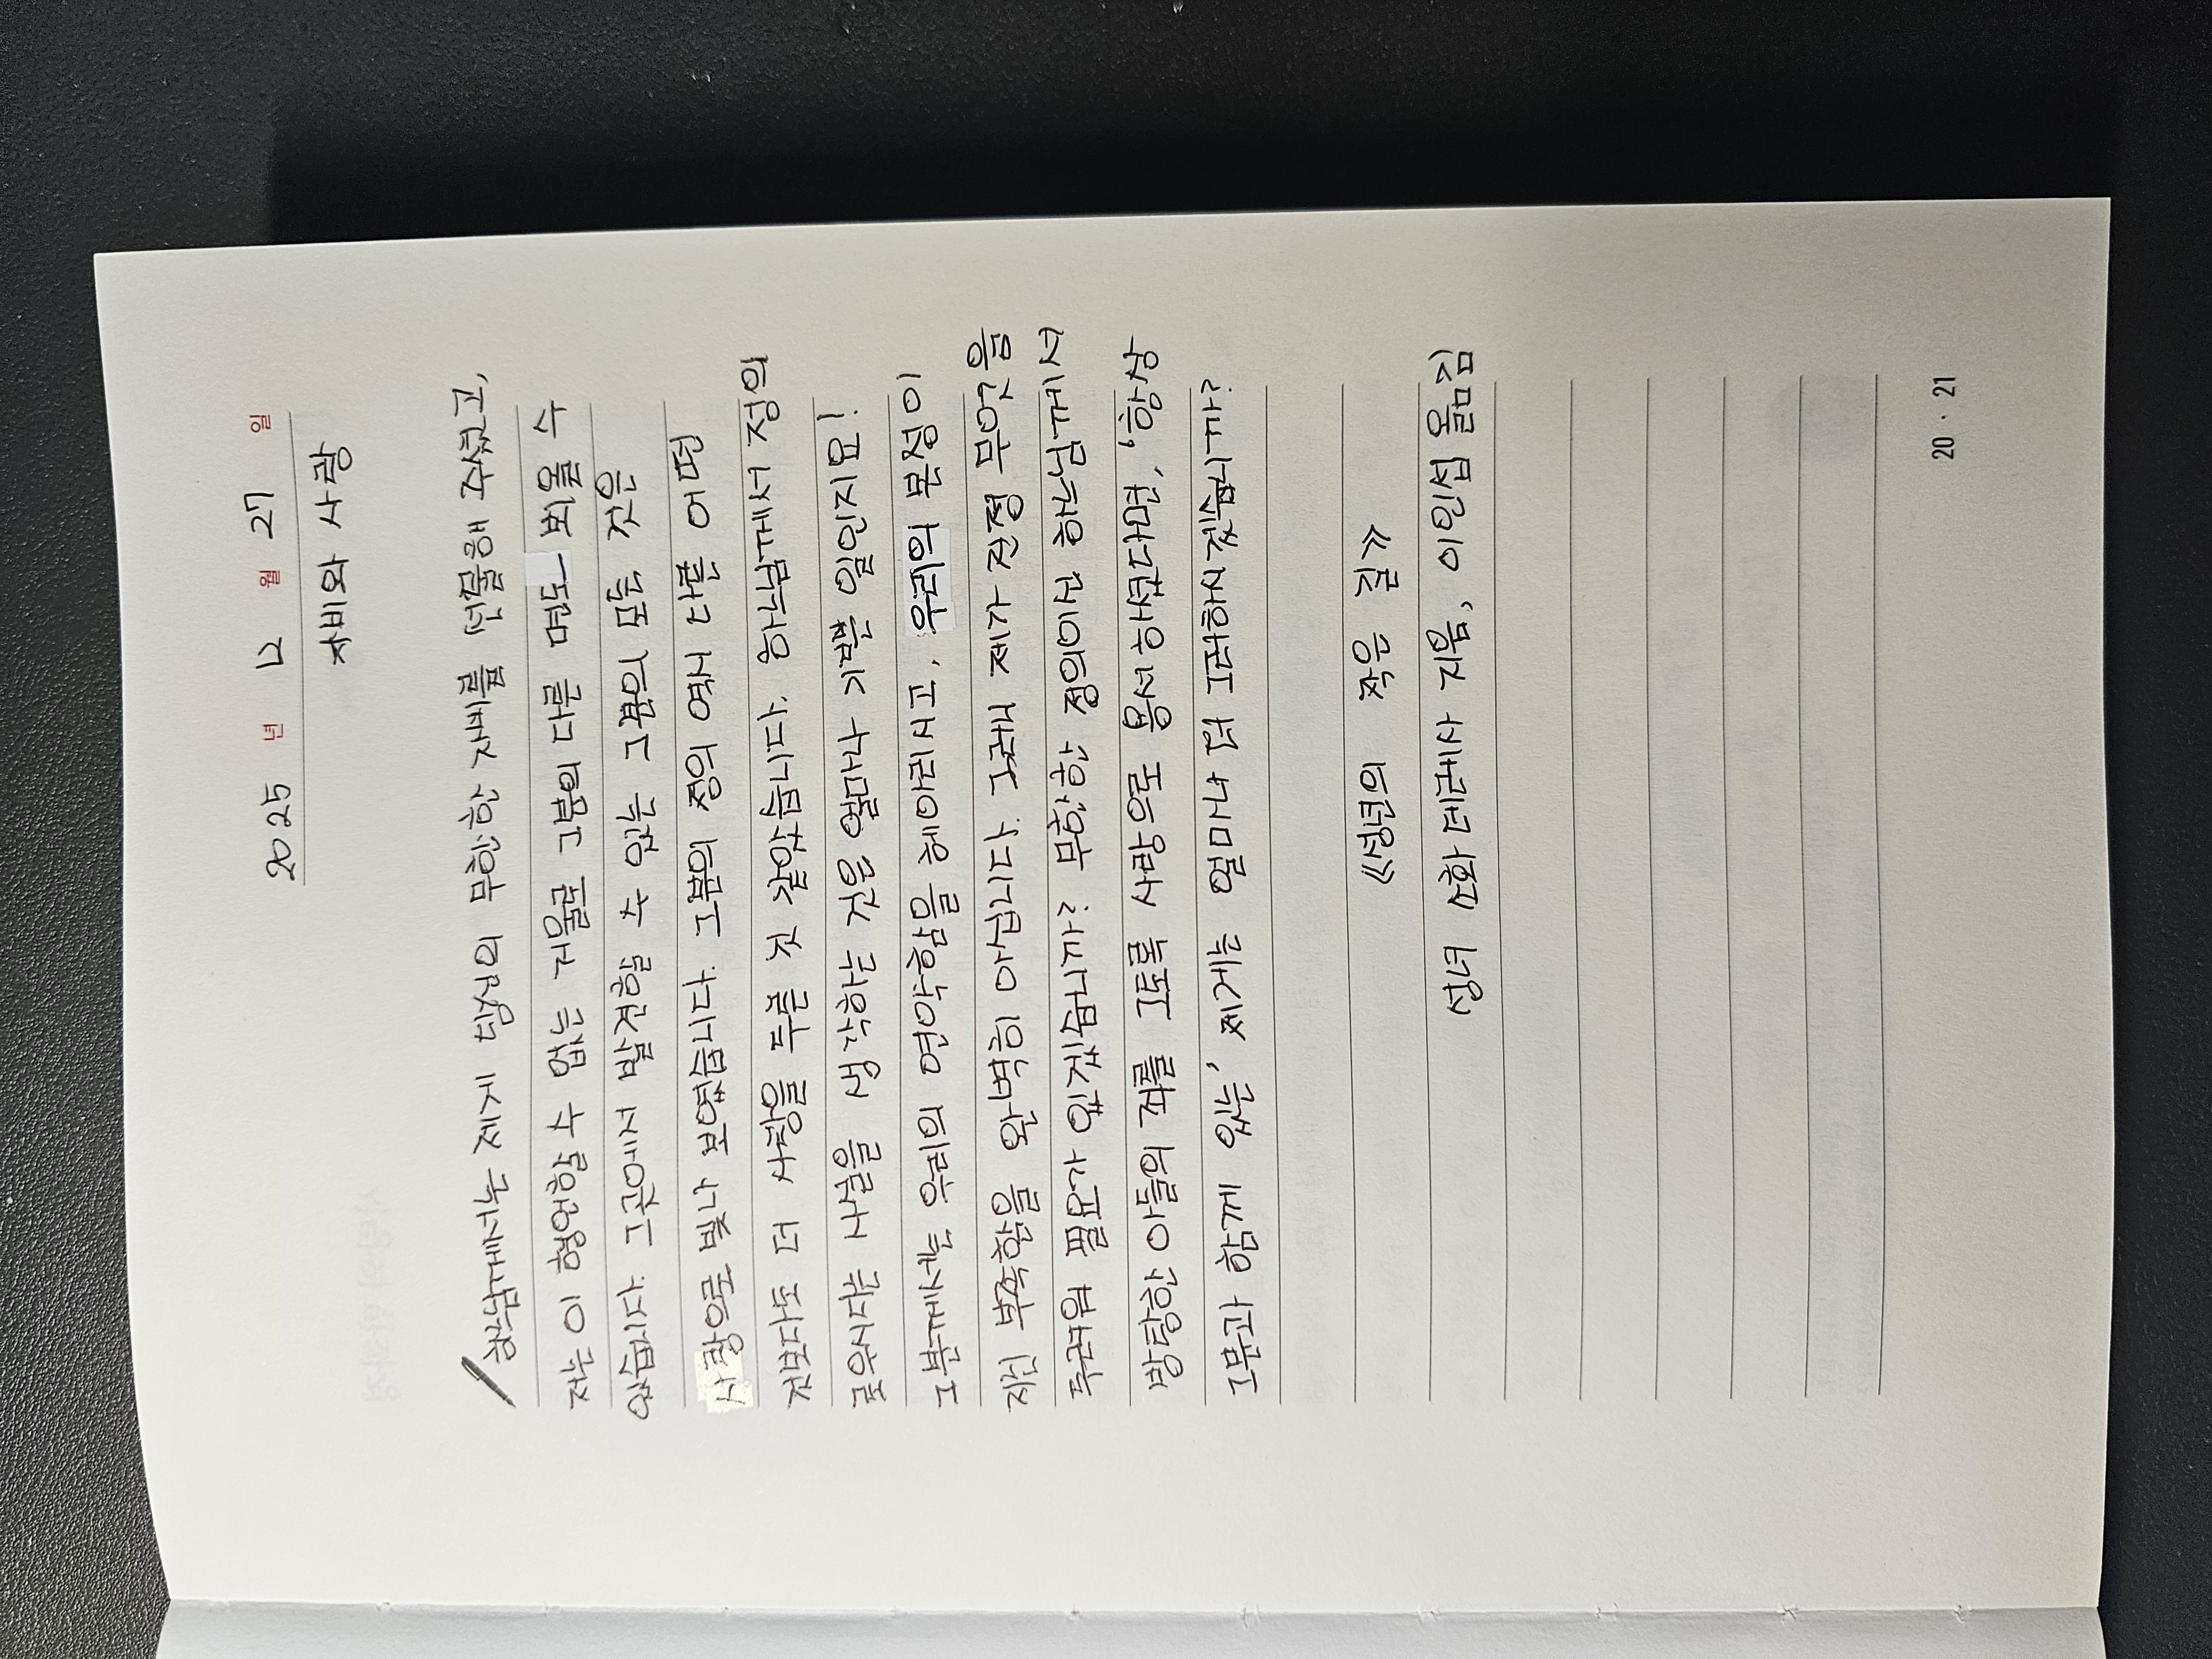 2025 년 12 월 27 일
자비와 사랑
하느님께서는 제게 당신의 무한한 자비를 선물해 주셨고,
저는 이 형언할 수 없는 거울로 그분의 다른 면도 뵈올 수
있습니다. 그곳에서 발견할 수 있는 그분의 모든 것은
사랑으로 빛나 보였습니다. 그분의 정의 역시 다른 어떤
것보다도 더 사랑을 두른 것 같았습니다. 하느님께서 정의
로우시다는 사실을 생각하는 것은 얼마나 기쁜 일인지요!
그분께서는 우리의 연약함을 헤아리시고, 우리의 본성이
지닌 부족함을 완벽히 아십니다. 그러니 제가 진정 무엇을
두려워 할 필요가 있겠습니까? 무한한 정의이신 하느님께서
방탕한 아들의 죄를 그토록 사랑으로 용서하셨다면, '항상
그분과 함께 있는' 제게는 얼마나 더 그러하시겠습니까?
《성녀의 작은 길》
성녀 소화 데레사 지음, 이인섭 옮김
20 · 21